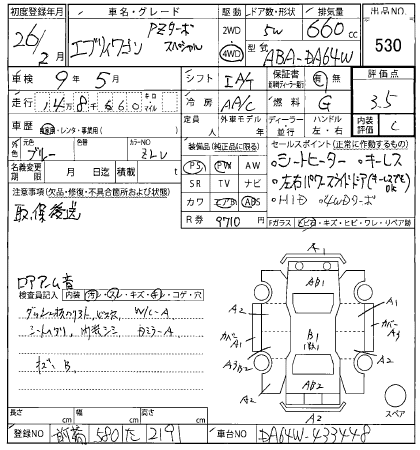 初度登録年月 車名・グレード 駆動 ドア数・形状 排気量 出品NO.
26/2月 エブリィワゴン PZターボスペシャル 2WD 4WD 5W 660cc 530
型式 ABA-DA64W
車検 9年5月 シフト IAT 保証書 有 無 評価点
走行 148660 キロ マイル 冷房 AA/C 燃料 G 3.5
車歴 自家用・レンタ・事業用( ) 定員 人 外車モデル 年 ディーラー 並行 ハンドル 左・右 内装評価 C
外色 元色 ブルー 色替 カラーNO ZLU
装備品(純正品に限る) セールスポイント(正常に作動するもの)
名義変更期限 月 日 積載 t
PS PW AW
・シートヒーター ・キーレス
SR TV ナビ
・左右パワースライドドア(キーレスでもOK)
注意事項(欠品・修復・不具合箇所および状態)
カワ エアB ABS
・HID ・4WDターボ
取保後送
R券 9710円
Fガラス トビ石・キズ・ヒビ・ワレ・リペア跡
ロアアーム音
検査員記入 内装 汚レ・スレ・キズ・キレ・コゲ・穴
W/C-A
A1
AB1
A2
A1
カバーA1
B1
カバーA4
A2
A2
AB2
A2
スペア
長さ cm 幅 cm 高さ cm
登録NO 前橋 580 た 2191 車台NO DA64W-433448